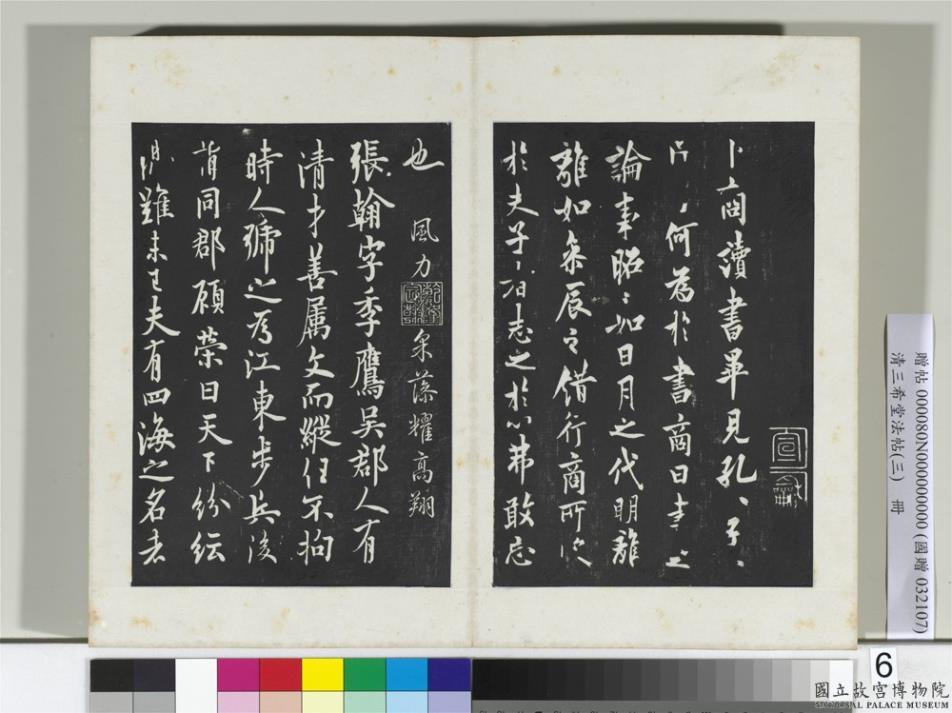 卜商讀書畢見孔﹅子﹅
問﹅何為於書商曰書之
論事昭﹅如日月之代明離
離如參辰之錯行商所受
於夫子﹅志之於心弗敢忘
也 風力 采藻耀高翔
張翰字季鷹吳郡人有
清才善属文而縱任不拘
時人號之為江東步兵後
謂同郡顧榮曰天下紛紜
禍難未已夫有四海之名者
宣和
贈帖 000080N000000000 (國贈 032107)
清三希堂法帖(三) 冊
6
國立故宮博物院
NATIONAL PALACE MUSEUM